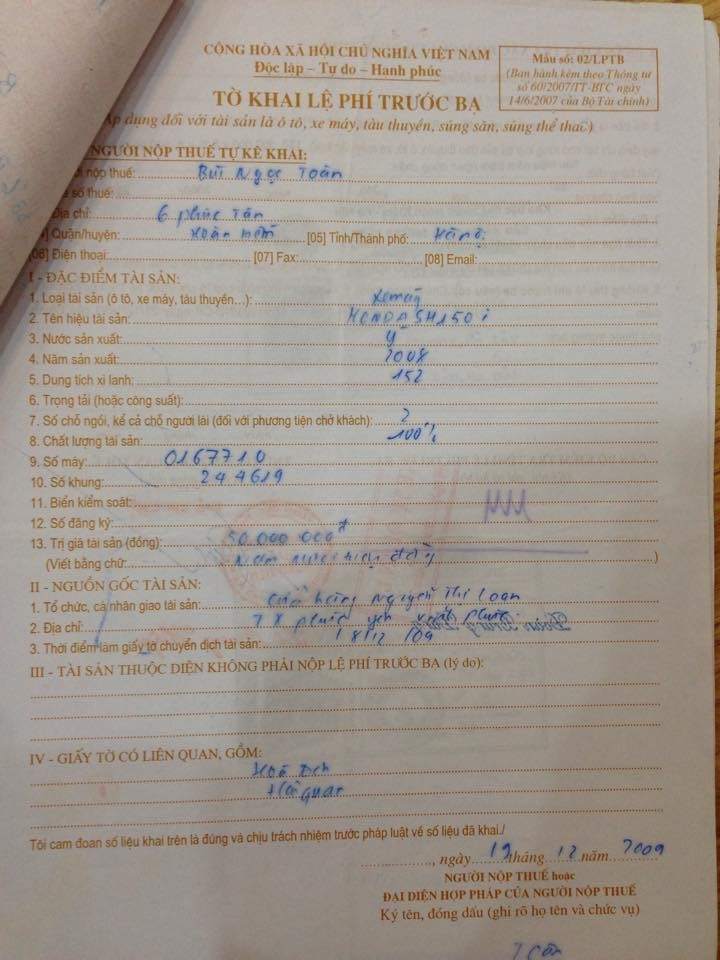 CỘNG HÒA XÃ HỘI CHỦ NGHĨA VIỆT NAM
Độc lập – Tự do – Hạnh phúc
Mẫu số: 02/LPTB
(Ban hành kèm theo Thông tư
số 60/2007/TT-BTC ngày
14/6/2007 của Bộ Tài chính)
TỜ KHAI LỆ PHÍ TRƯỚC BẠ
p dụng đối với tài sản là ô tô, xe máy, tàu thuyền, súng săn, súng thể thao)
NGƯỜI NỘP THUẾ TỰ KÊ KHAI:
nộp thuế: Bùi Ngọc Toàn
số thuế:
Địa chỉ: 6 phúc Tân
Quận/huyện: Hoàn Kiếm [05] Tỉnh/Thành phố: Hà Nội
[06] Điện thoại: [07] Fax: [08] Email:
I - ĐẶC ĐIỂM TÀI SẢN:
1. Loại tài sản (ô tô, xe máy, tàu thuyền...): Xe máy
2. Tên hiệu tài sản: HONDA SH150i
3. Nước sản xuất: ý
4. Năm sản xuất: 2008
5. Dung tích xi lanh: 152
6. Trọng tải (hoặc công suất):
7. Số chỗ ngồi, kể cả chỗ người lái (đối với phương tiện chở khách): 2
8. Chất lượng tài sản: 100%
9. Số máy: 0167710
10. Số khung: 244619
11. Biển kiểm soát:
12. Số đăng ký:
13. Trị giá tài sản (đồng): 50.000.000đ
(Viết bằng chữ: Năm mươi triệu đồng)
II - NGUỒN GỐC TÀI SẢN:
1. Tổ chức, cá nhân giao tài sản: Cửa hàng Nguyễn Thị Loan
2. Địa chỉ: TX phúc yên vĩnh phúc
3. Thời điểm làm giấy tờ chuyển dịch tài sản: 18/12/09
III - TÀI SẢN THUỘC DIỆN KHÔNG PHẢI NỘP LỆ PHÍ TRƯỚC BẠ (lý do):
IV - GIẤY TỜ CÓ LIÊN QUAN, GỒM:
Hoá Đơn
Hải quan
Tôi cam đoan số liệu khai trên là đúng và chịu trách nhiệm trước pháp luật về số liệu đã khai./
, ngày 19 tháng 12 năm 2009
NGƯỜI NỘP THUẾ hoặc
ĐẠI DIỆN HỢP PHÁP CỦA NGƯỜI NỘP THUẾ
Ký tên, đóng dấu (ghi rõ họ tên và chức vụ)